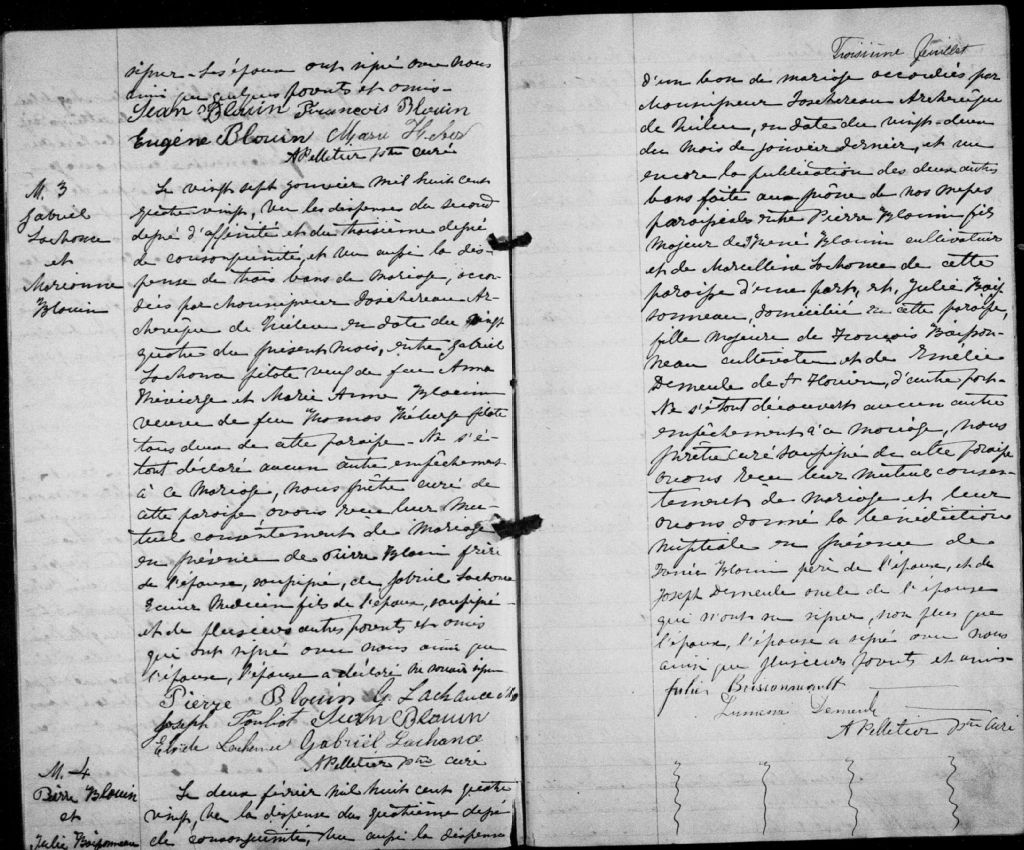 signer - Les époux ont signé avec nous
ainsi que quelques parents et amis -
Jean Blouin François Blouin
Eugène Blouin Marie
A Pelletier ptre curé
M. 3
Gabriel
Lachance
et
Marianne
Blouin
Le vingt sept janvier mil huit cent
quatre vingt, vu les dispense du second
degré d'affinité et du troisième degré
de consanguinité, et vu aussi la dis-
pense de trois bans de mariage, accor-
dées par Monseigneur Taschereau Ar-
chevêque de Québec en date du vingt
quatre du présent mois, entre Gabriel
Lachance pilote veuf de feu Anna
et Marie Anne Blouin
veuve de feu Thomas Théberge pilote
tous deux de cette paroisse - Ne s'é-
tant déclaré aucun autre empêchement
à ce mariage, nous prêtre curé de
cette paroisse avons reçu leur mu-
tuel consentement de mariage
en présence de Pierre Blouin frère
de l'épouse, soussigné, de Gabriel Lachance
Ecuier Médecin fils de l'époux, soussigné -
et de plusieurs autres parents et amis
qui ont signé avec nous ainsi que
l'époux, l'épouse a déclaré ne savoir signer
Pierre Blouin G. Lachance
Joseph Jean Blouin
Lachance Gabriël Lachance
A Pelletier ptre curé
M. 4
Pierre Blouin
et
Julie Boissonneau
Le deux février mil huit cent quatre
vingt, vu la dispense du quatrième degré
de consanguinité, vu aussi la dispense
Troisième feuillet
d'un ban de mariage accordées par
Monseigneur Taschereau Archevêque
de Québec, en date du vingt-deux
du mois de janvier dernier, et vu
encore la publication des deux autres
bans faite au prône de nos messes
paroissiales entre Pierre Blouin fils
majeur de René Blouin cultivateur
et de Marcelline Lachance de cette
paroisse d'une part, et, Julie Bois
sonneau, domiciliée en cette paroisse,
fille majeure de François Boisson-
neau cultivateur et de Emélie
Demeule de St. d'autre part -
Ne s'étant découvert aucun autre
empêchement à ce mariage, nous
prêtre curé soussigné de cette paroisse
avons reçu leur mutuel consen-
tement de mariage et leur
avons donné la bénédiction
nuptiale en présence de
René Blouin père de l'époux, et de
Joseph Demeule oncle de l'épouse
qui n'ont su signer, non plus que
l'époux, l'épouse a signé avec nous
ainsi que plusieurs parents et amis -
Julie Boissonnault
Demeule
A Pelletier ptre curé